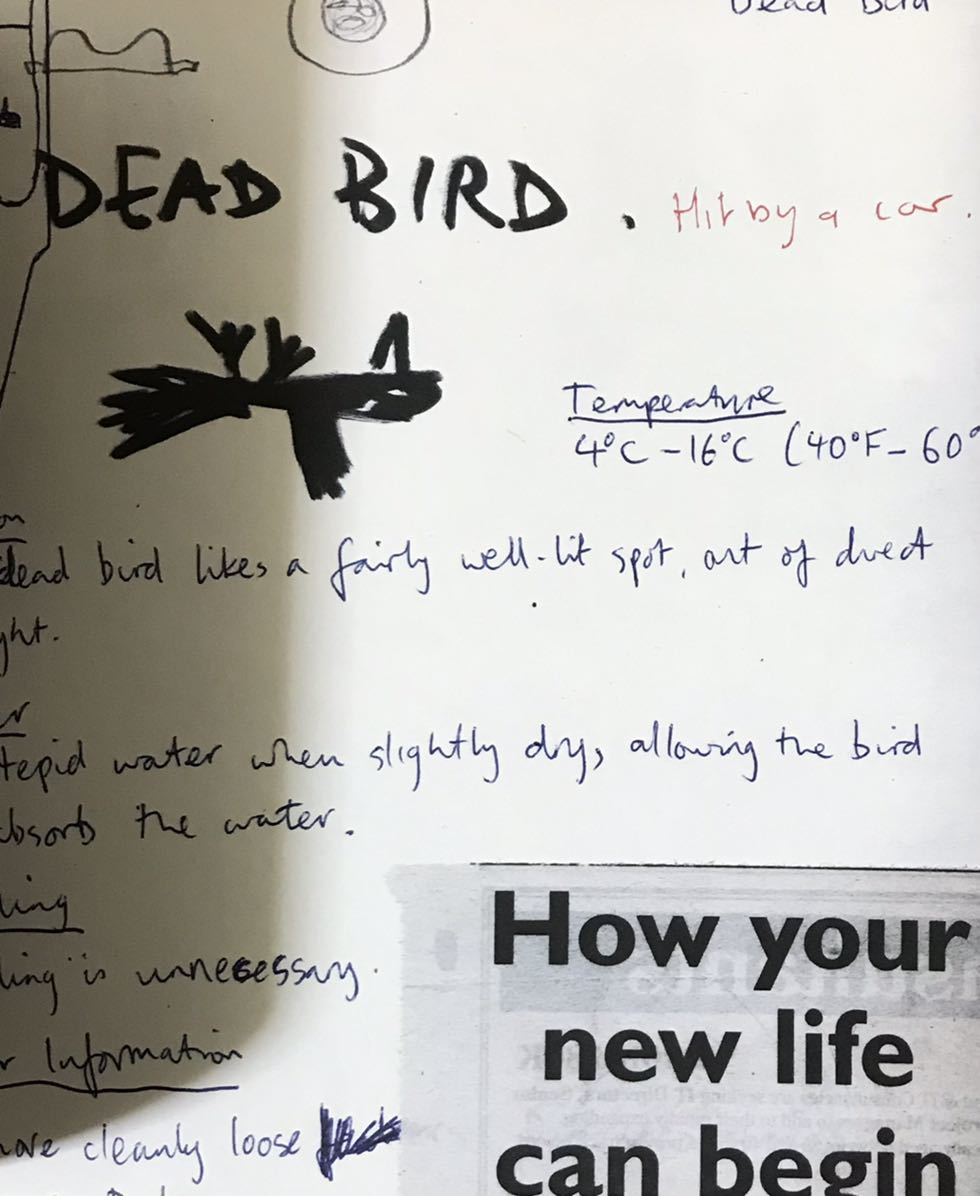 Dead Bird
DEAD BIRD. Hit by a car.
Temperature
4°C - 16°C (40°F - 60°
dead bird likes a fairly well-lit spot, out of direct
ght.
tepid water when slightly dry, allowing the bird
absorb the water.
ling
ling is unnecessary.
r Information
ove cleanly loose
How your
new life
can begin